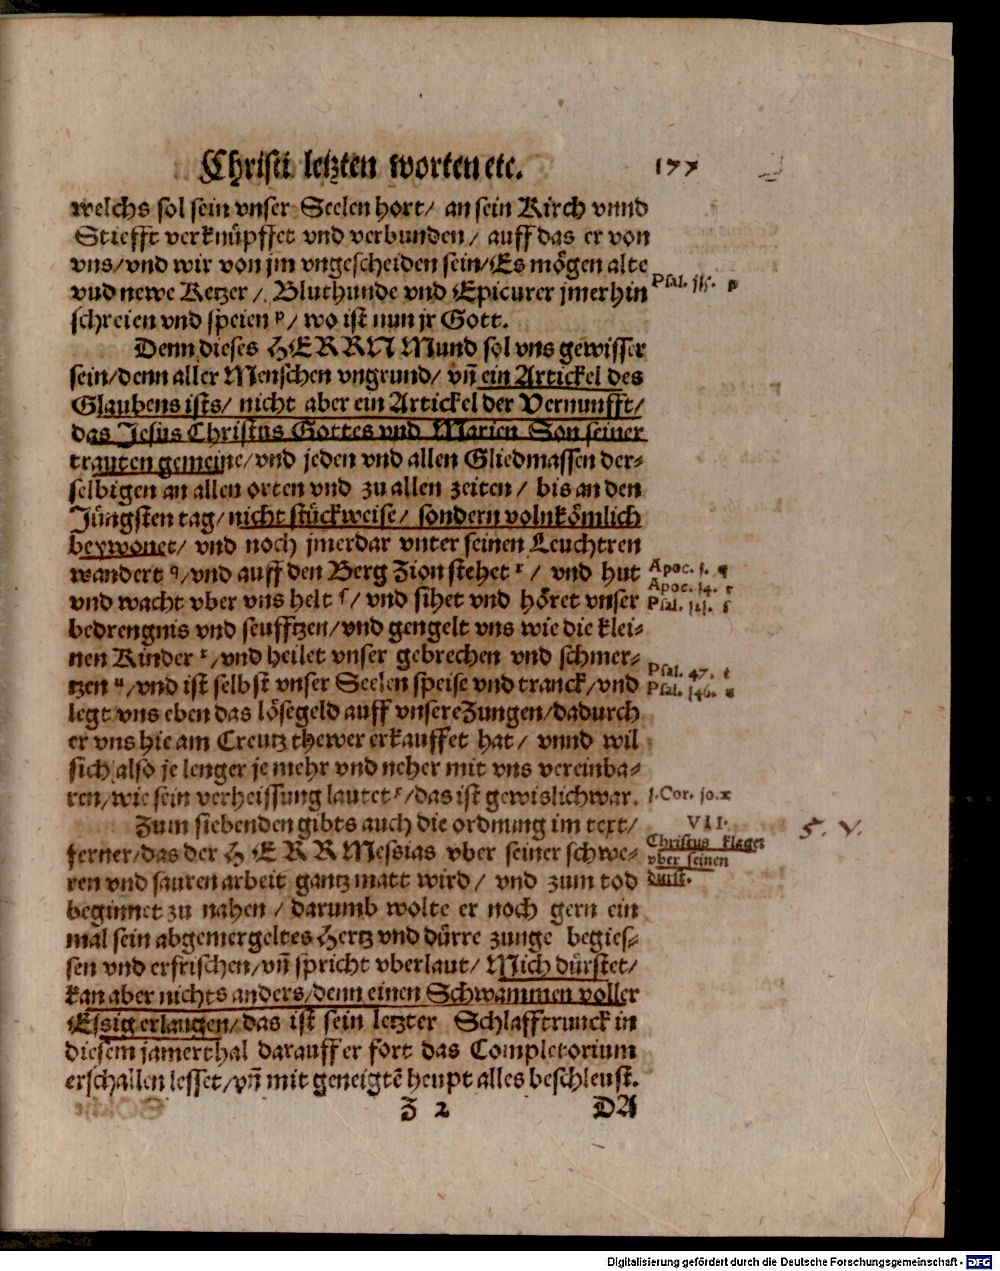 Christi letzten worten etc.
177
welchs sol sein vnser Seelen hort/ an sein Kirch vnnd
Stiefft verknüpffet vnd verbunden/ auff das er von
vns/vnd wir von jm vngescheiden sein/Es mögen alte
vnd newe Ketzer/ Bluthunde vnd Epicurer jmerhin
Psal. jjj. p
schreien vnd speien p/ wo ist nun jr Gott.
Denn dieses HERRN Mund sol vns gewisser
sein/denn aller Menschen vngrund/ vñ ein Artickel des
Glaubens ists/ nicht aber ein Artickel der Vernunfft/
das Jesus Christus Gottes vnd Marien Son seiner
trauten gemeine/vnd jeden vnd allen Gliedmassen der-
selbigen an allen orten vnd zu allen zeiten/ bis an den
Jüngsten tag/ nicht stückweise/ sondern volnkömlich
beywonet/ vnd noch jmerdar vnter seinen Leuchtren
wandert q/vnd auff den Berg Zion stehet r/ vnd hut
Apoc. j. q
Apoc. j4. r
vnd wacht vber vns helt s/ vnd sihet vnd höret vnser
Psal. jzj. s
bedrengnis vnd seufftzen/vnd gengelt vns wie die klei-
nen Kinder t/vnd heilet vnser gebrechen vnd schmer-
Psal. 47. t
tzen u/vnd ist selbst vnser Seelen speise vnd tranck/vnd
Psal. j46. u
legt vns eben das lösegeld auff vnsere Zungen/dadurch
er vns hie am Creutz thewer erkauffet hat/ vnnd wil
sich also je lenger je mehr vnd neher mit vns vereinba-
ren/wie sein verheissung lautet x/das ist gewislich war.
j. Cor. jo. x
Zum siebenden gibts auch die ordnung im text/
VII.
5. V.
ferner/das der HERR Messias vber seiner schwe-
Christus klaget
vber seinen
ren vnd sauren arbeit gantz matt wird/ vnd zum tod
durst.
beginnet zu nahen/ darumb wolte er noch gern ein
mal sein abgemergeltes Hertz vnd dürre zunge begies-
sen vnd erfrischen/vñ spricht vberlaut/ Mich dürstet/
kan aber nichts anders/denn einen Schwammen voller
Essig erlangen/das ist sein letzter Schlafftrunck in
diesem jamerthal darauff er fort das Completorium
erschallen lesset/vñ mit geneigtē heupt alles beschleust.
Z 2
DA
Digitalisierung gefördert durch die Deutsche Forschungsgemeinschaft - DFG